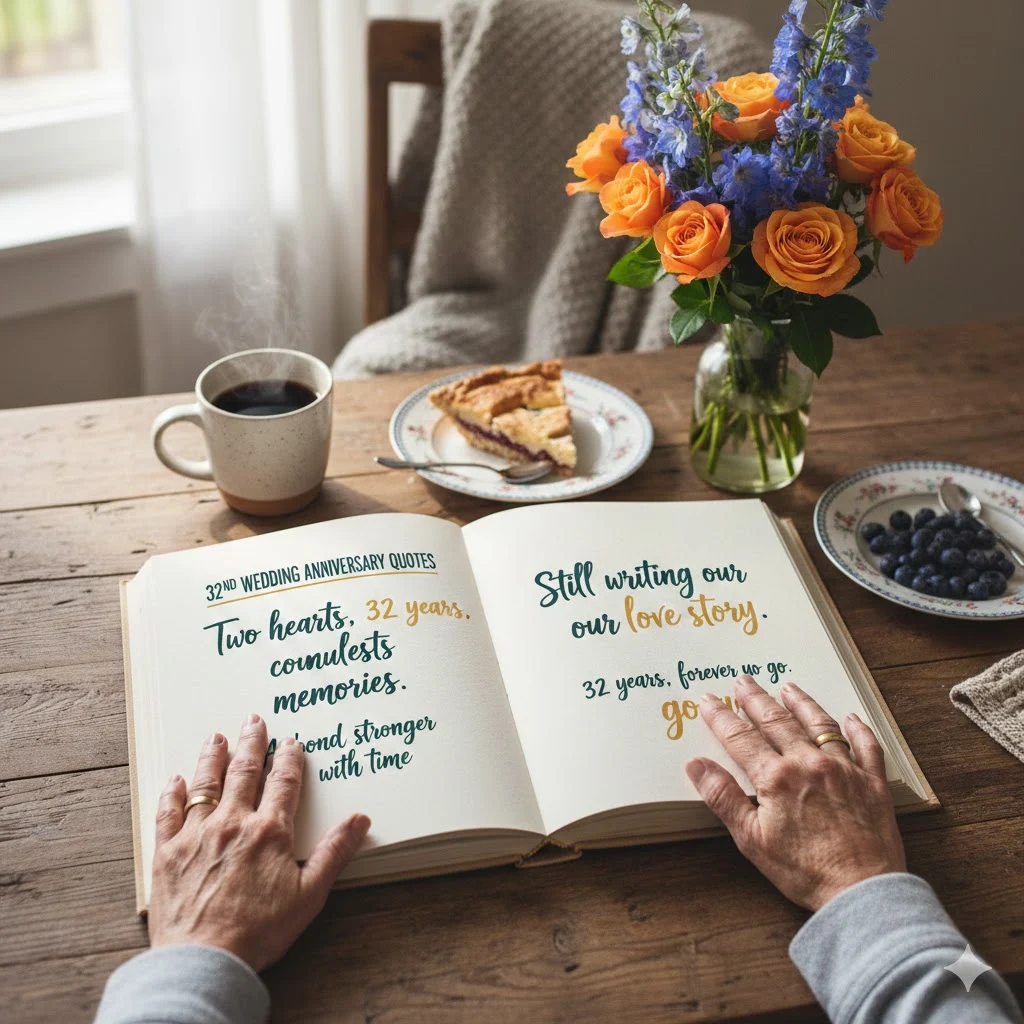 32ND WEDDING ANNIVERSARY QUOTES
Two hearts, 32 years.
comulests
memories.
bond stronger
with time
Still writing our
our love story.
32 years, forever yo go.
go